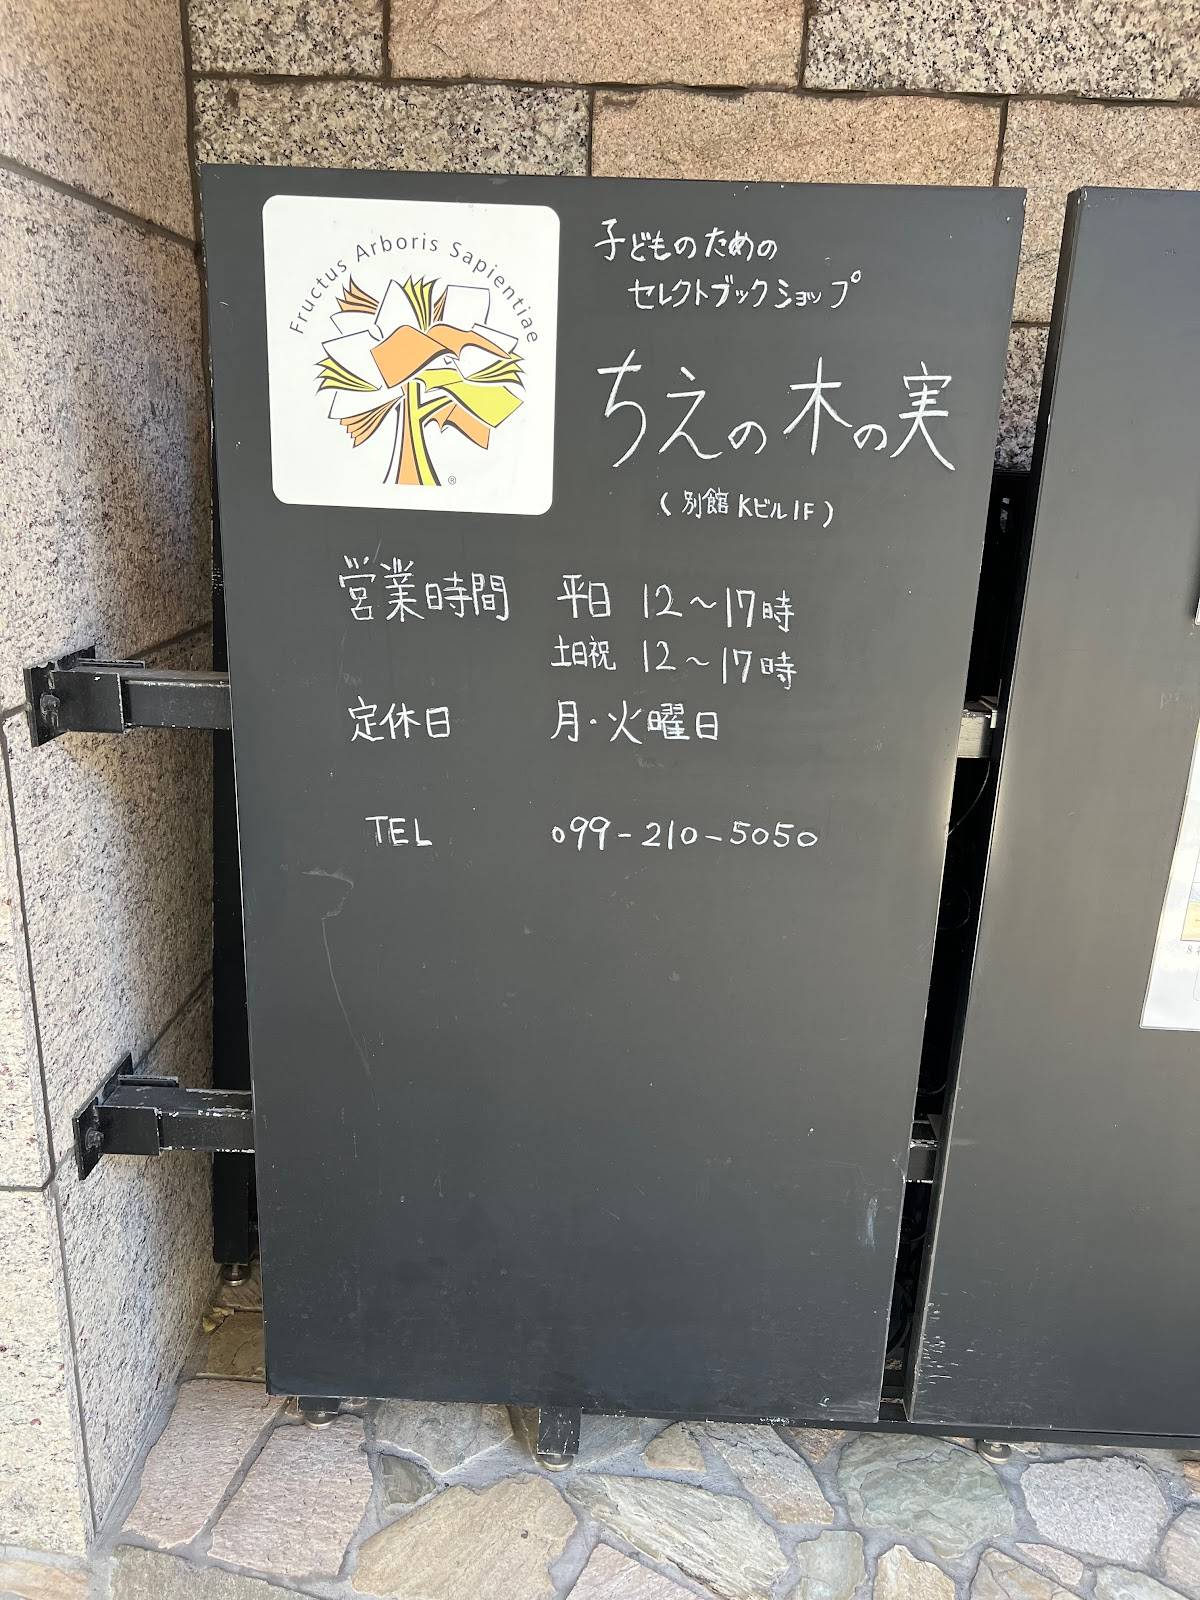 Fructus Arboris Sapientiae
®
子どものための
セレクトブックショップ
ちえの木の実
(別館 Kビル1F)
営業時間 平日 12〜17時
土日祝 12〜17時
定休日 月・火曜日
TEL 099-210-5050